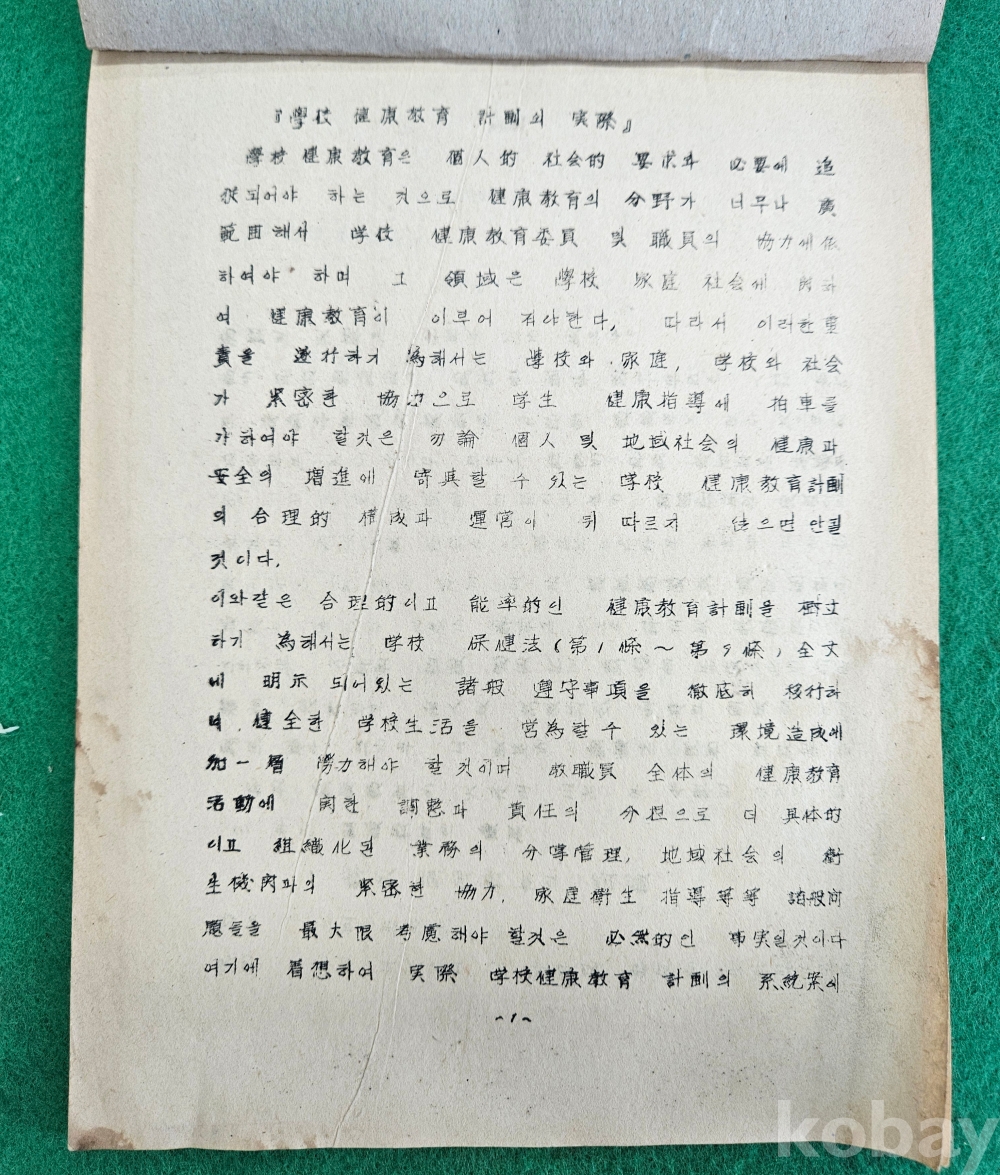 『學校 健康敎育 計劃의 実際』
學校 健康敎育은 個人的 社会的 要求와 必要에 追
従되어야 하는 것으로 健康敎育의 分野가 너무나 廣
範囲해서 学校 健康敎育委員 및 職員의 協力에依
하여야 하며 그 領域은 學校 家庭 社会에
여 健康敎育이 이루어 져야한다. 따라서 이러한重
責을 遂行하기 為해서는 學校와 家庭, 学校와 社会
가 緊密한 協力으로 学生 健康指導에 拍車를
가하여야 할것은 勿論 個人 및 地域社会의 健康과
安全의 增進에 寄與할 수 있는 学校 健康敎育計劃
의 合理的 構成과 運営이 뒤 따르지 않으면 안될
것이다.
이와같은 合理的이고 能率的인 健康敎育計劃을 樹立
하기 為해서는 学校 保健法(第1條~第9條) 全文
에 明示 되어있는 諸般 遵守事項을 徹底히 移行하
며 健全한 学校生活을 営為할수 있는 環境造成에
加一層 勞力해야 할것이며 敎職員 全体의 健康敎育
活動에 関한 調整과 責任의 分担으로 더 具体的
이고 組織化된 業務의 分導管理, 地域社会의 衛
生機関과의 緊密한 協力, 家庭衛生 指導等等 諸般問
題들을 最大限 考慮해야 할것은 必然的인 事実일것이다
여기에 着想하여 実際 学校健康敎育 計劃의 系統案에
~1~
kobay